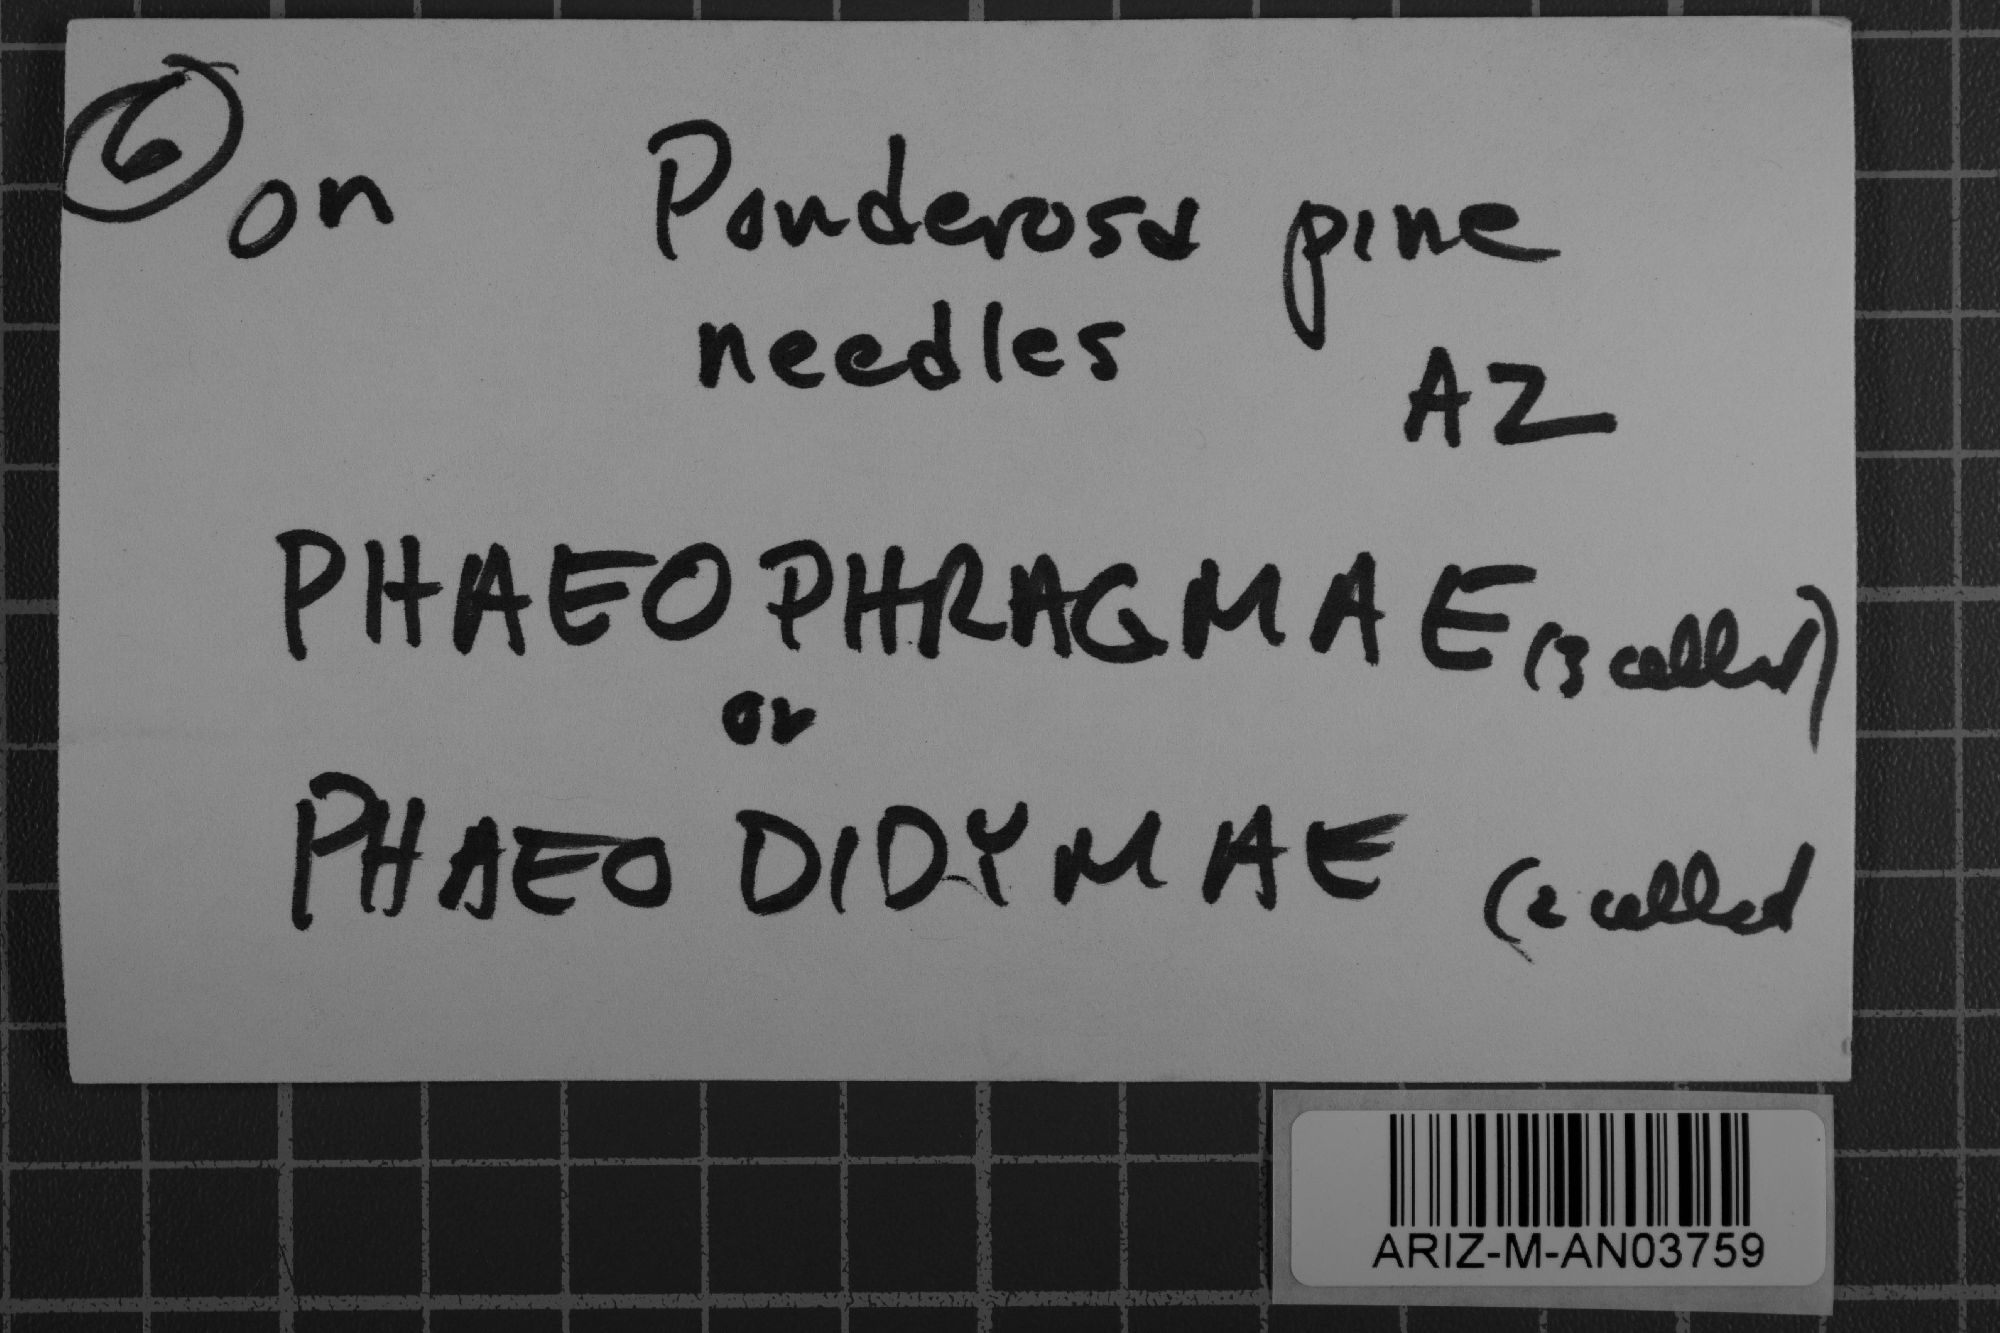 6 on Ponderosa pine
needles
AZ
PHAEOPHRAGMAE (3 celled)
or
PHAEO DIDYMAE (2 celled
ARIZ-M-AN03759